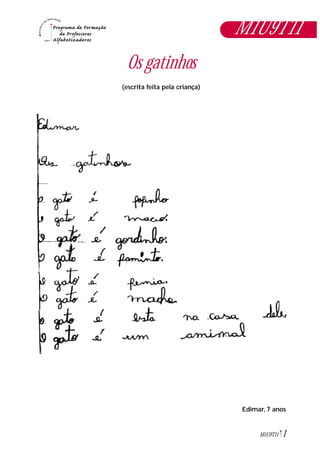 Programa de Formação
de Professores
Alfabetizadores
M1U9T11
Os gatinhos
(escrita feita pela criança)
Edimar
Os gatinhos
o gato é fofinho
o gato é macio.
O gato é gordinho.
O gato é faminto.
O gato é femia.
O gato é macho.
o gato é esta na casa dele,
O gato é um amimal
Edimar, 7 anos
M1U9T11 1